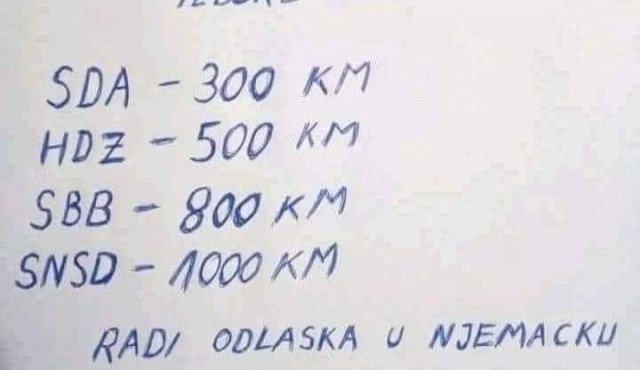 SDA - 300 KM
HDZ - 500 KM
SBB - 800 KM
SNSD - 1000 KM
RADI ODLASKA U NJEMACKU